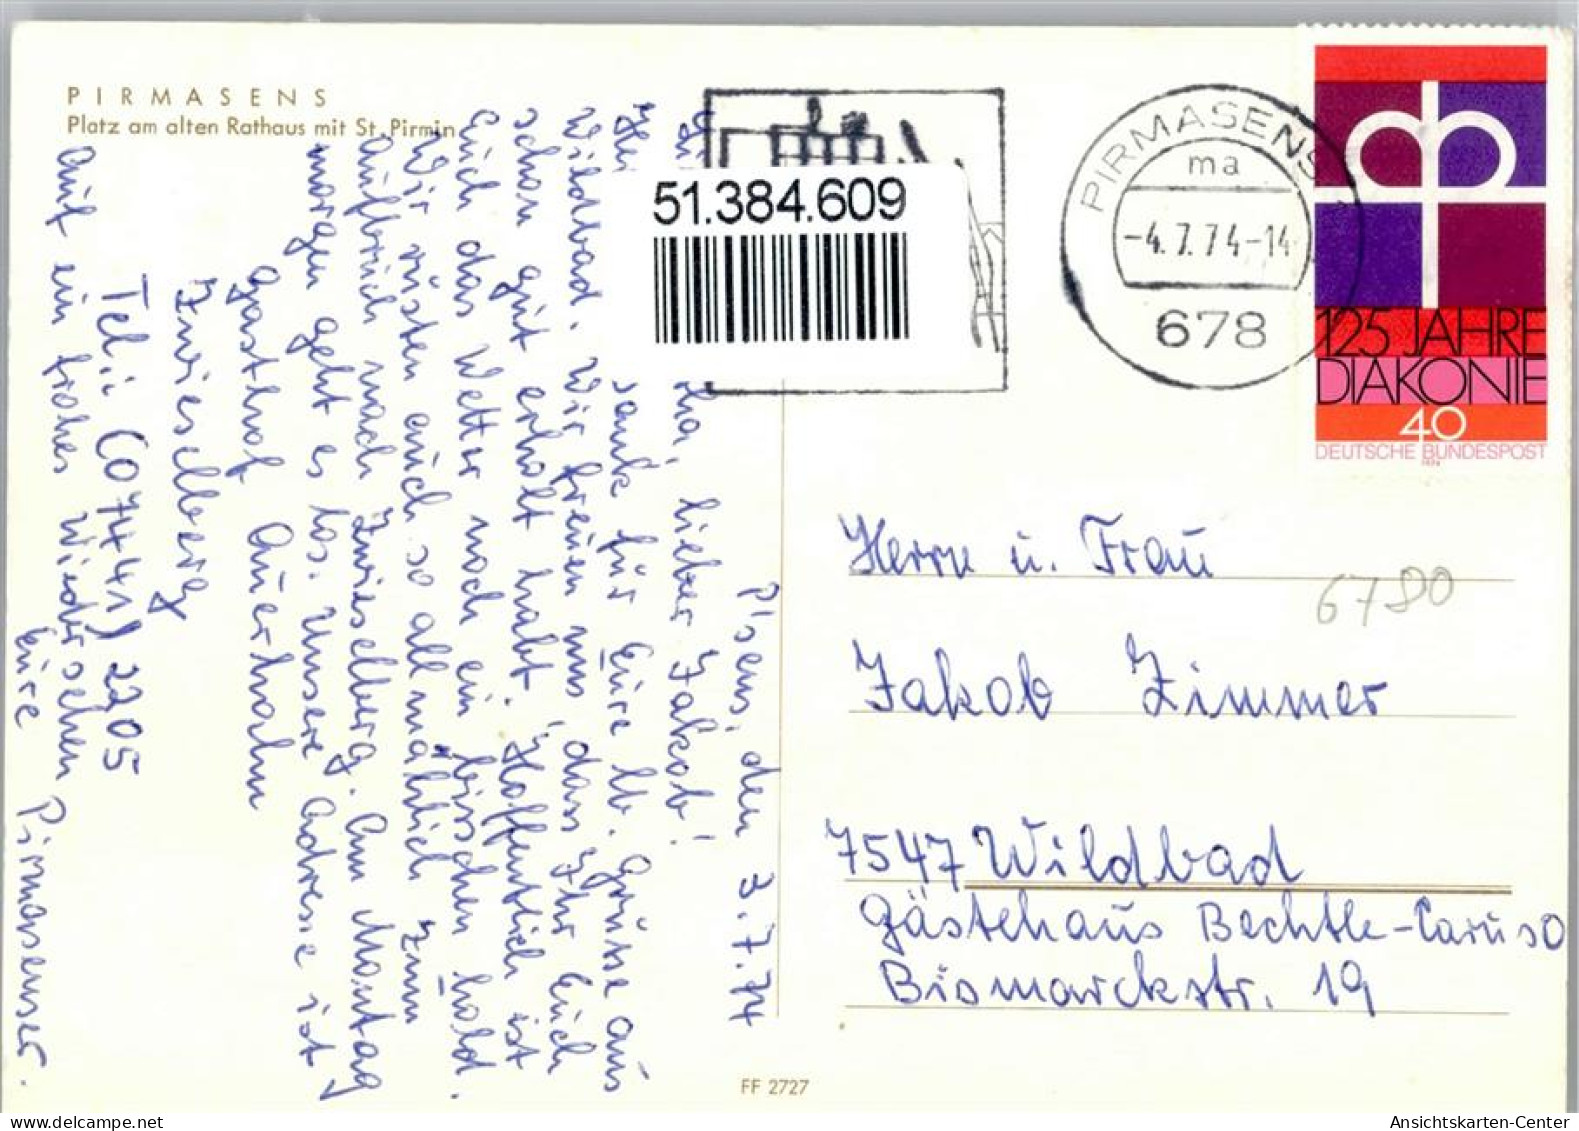 PIRMASENS
Platz am alten Rathaus mit St. Pirmin
P'sens, den 3.7.74
lieber Jakob!
für Eure lb. Grüsse aus
Wildbad. Wir freuen uns, dass Ihr Euch
schon gut erholt habt. Hoffentlich ist
Euch das Wetter noch ein bisschen hold.
Wir rüsten auch so allmählich zum
Aufbruch nach Zwieselberg. Am Montag
morgen geht es los. Unsere Adresse ist
Gasthof Auerhahn
Zwieselberg
Tel.: (07441) 2205
Auf ein frohes Wiedersehen
Eure Pirmasenser.
51.384.609
PIRMASENS
ma
-4.7.74-14
678
125 JAHRE
DIAKONIE
40
DEUTSCHE BUNDESPOST
1974
Herrn u. Frau
6780
Jakob Zimmer
7547 Wildbad
Gästehaus Bechtle-Caruso
Bismarckstr. 19
FF 2727
http://www.delcampe.net
Ansichtskarten-Center